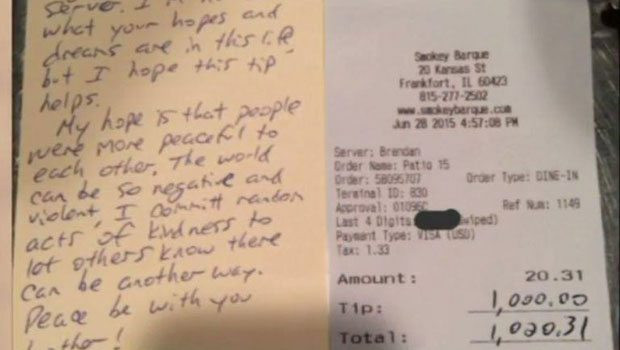 server. I
what your hopes and
dreams are in this life
but I hope this tip
helps.
My hope is that people
were more peaceful to
each other. The world
can be so negative and
violent, I commit random
acts of kindness to
let others know there
can be another way.
Peace be with you
Smokey Barque
20 Kansas St
Frankfort, IL 60423
815-277-2502
www.smokeybarque.com
Jun 28 2015 4:57:08 PM
Server: Brendan
Order Name: Patio 15
Order: 5B095707 Order Type: DINE-IN
Terminal ID: 830
Approval: 01096C Ref Num: 1149
Last 4 Digits wiped)
Payment Type: VISA (USD)
Tax: 1.33
Amount: 20.31
Tip: 1,000.00
Total: 1,020.31